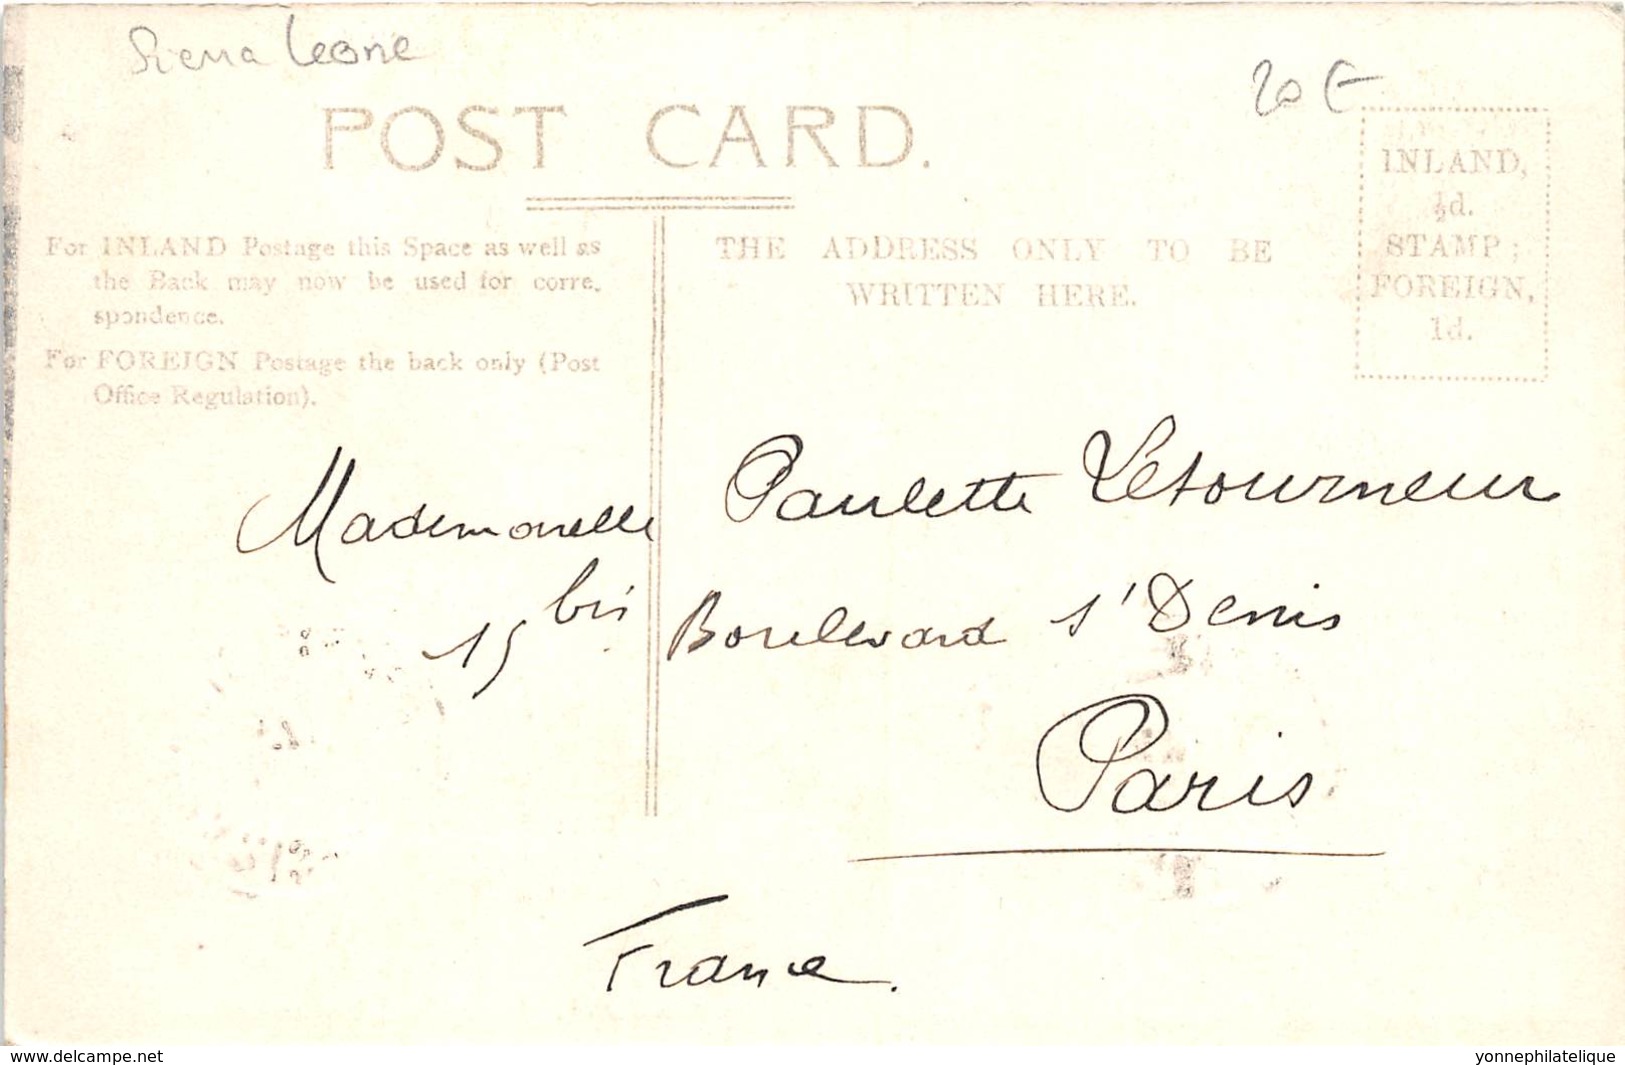 Sierra Leone
20 €
POST CARD.
For INLAND Postage this Space as well as
the Back may now be used for corre.
spondence.
For FOREIGN Postage the back only (Post
Office Regulation).
THE ADDRESS ONLY TO BE
WRITTEN HERE.
INLAND,
½d.
STAMP;
FOREIGN,
1d.
Mademoiselle Paulette Letourneur
15 bis Boulevard St Denis
Paris
France.
www.delcampe.net
yonnephilatelique